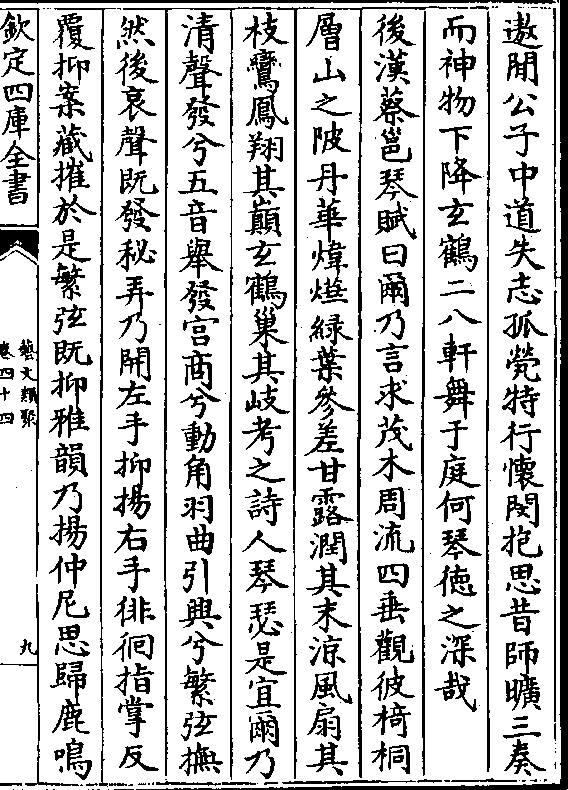 遨閒公子中道失志孤煢特行懷閔抱思昔師曠三奏
而神物下降玄鶴二八軒舞于庭何琴徳之深哉
後漢蔡邕琴賦曰爾乃言求茂木周流四垂觀彼椅桐
層山之陂丹華煒爗緑葉參差甘露潤其末涼風扇其
枝鸞鳳翔其巔玄鶴巢其岐考之詩人琴瑟是宜爾乃
清聲發兮五音舉發宫商兮動角羽曲引興兮繁弦撫
然後哀聲既發秘弄乃開左手抑揚右手徘徊指掌反
覆抑案藏摧於是繁弦既抑雅韻乃揚仲尼思歸鹿鳴
欽定四庫全書
藝文類聚
卷四十四
九